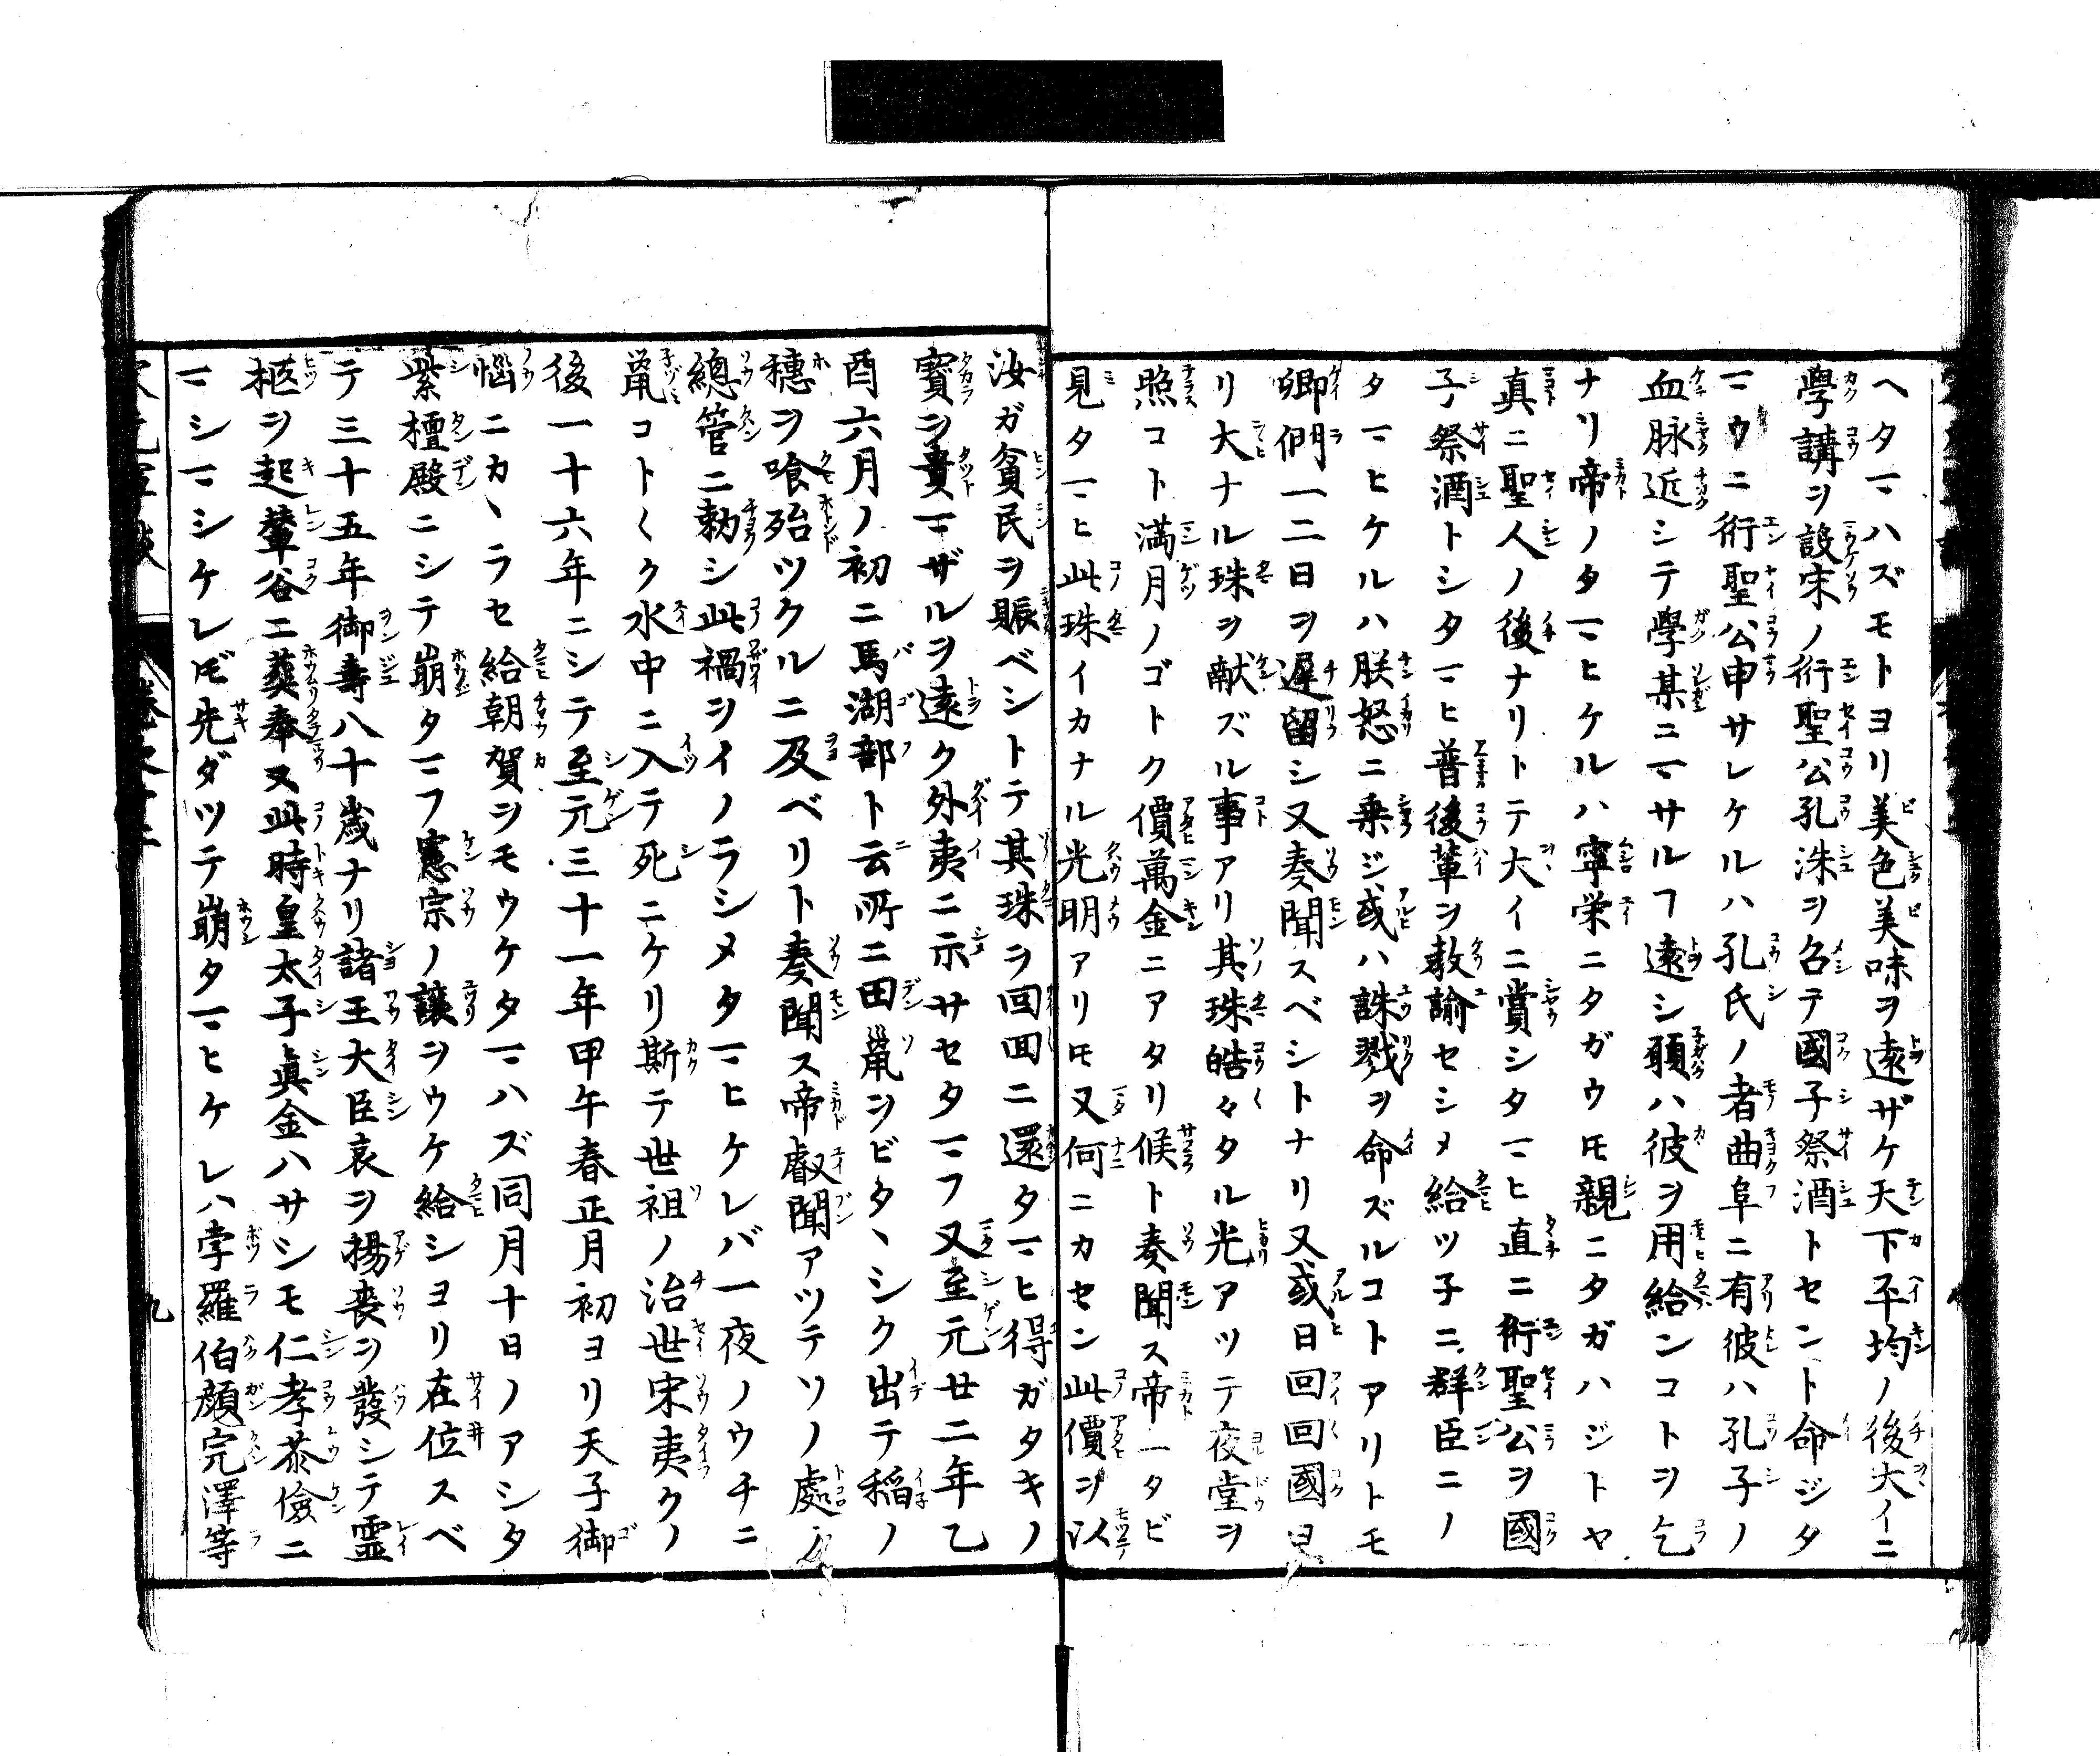 ヘタマハズモトヨリ美色美味ヲ遠ザケ天下平均ノ後大イニ
學講ヲ設宋ノ衍聖公孔洙ヲ召テ國子祭酒トセント命ジタ
マウニ衍聖公申サレケルハ孔氏ノ者曲阜ニ有彼ハ孔子ノ
血脉近シテ學某ニマサルヿ遠シ願ハ彼ヲ用給ンコトヲ乞
ナリ帝ノタマヒケルハ寧栄ニタガウモ親ニタガハジトヤ
真ニ聖人ノ後ナリトテ大イニ賞シタマヒ直ニ衍聖公ヲ國
子祭酒トシタマヒ普後輩ヲ教諭セシメ給ツ子ニ群臣ニノ
タマヒケルハ朕怒ニ乗ジ或ハ誅戮ヲ命ズルコトアリトモ
卿們一二日ヲ遅留シ又奏聞スベシトナリ又或日回回國ヨ
リ大ナル珠ヲ献ズル事アリ其珠皓々タル光アツテ夜堂ヲ
照コト満月ノゴトク價萬金ニアタリ候ト奏聞ス帝一タビ
見タマヒ此珠イカナル光明アリトモ又何ニカセン此價ヲ以
汝ガ貧民ヲ賑ベシトテ其珠ヲ回回ニ還タマヒ得ガタキノ
寳ヲ貴マザルヲ遠ク外夷ニ示サセタマフ又至元廿二年乙
酉六月ノ初ニ馬湖部ト云所ニ田鼡ヲビタヽシク出テ稲ノ
穂ヲ喰殆ツクルニ及ベリト奏聞ス帝叡聞アツテソノ處ノ
總管ニ勅シ此禍ヲイノラシメタマヒケレバ一夜ノウチニ
鼡コト〱ク水中ニ入テ死ニケリ斯テ世祖ノ治世宋夷クノ
後一十六年ニシテ至元三十一年甲午春正月初ヨリ天子御
惱ニカヽラセ給朝賀ヲモウケタマハズ同月十日ノアシタ
紫檀殿ニシテ崩タマフ憲宗ノ譲ヲウケ給シヨリ在位スベ
テ三十五年御壽八十歳ナリ諸王大臣哀ヲ揚喪ヲ發シテ霊
柩ヲ起輦谷ニ葬奉又此時皇太子真金ハサシモ仁孝恭儉ニ
マシマシケレドモ先ダツテ崩タマヒケレハ孛羅伯顔完澤等
九